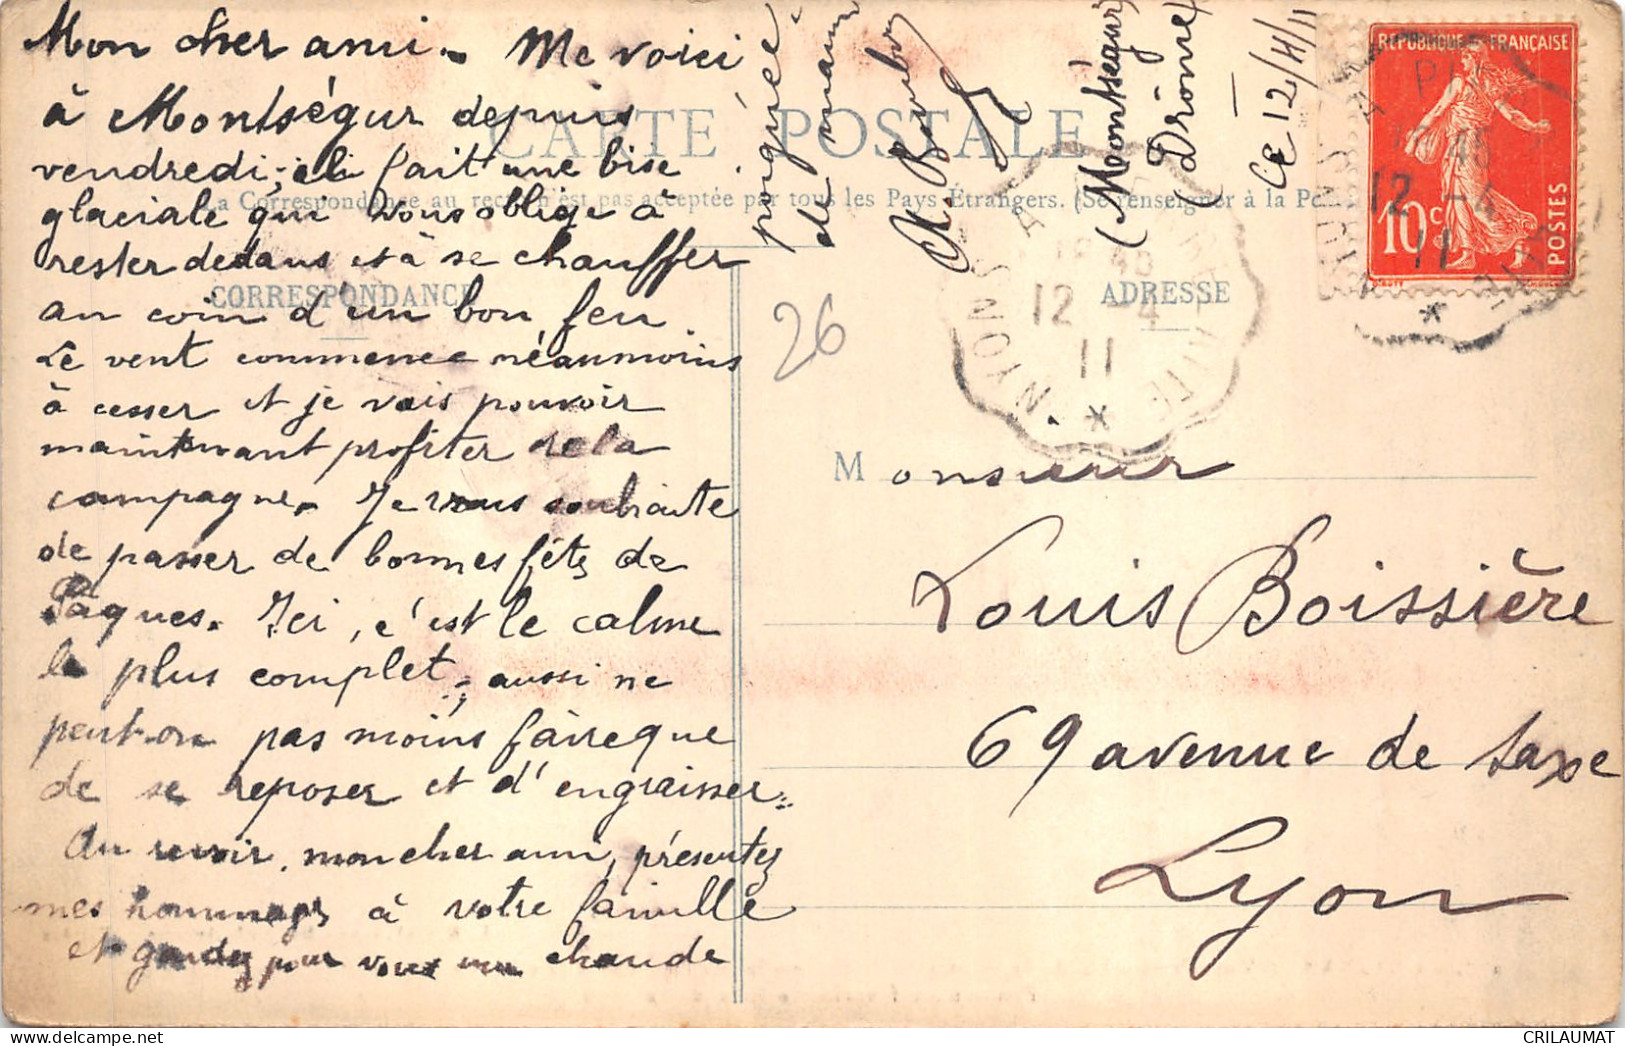 Mon cher ami. Me voici
à Montségur depuis
vendredi; ici fait une bise
glaciale qui vous oblige à
rester dedans et à se chauffer
au coin d'un bon feu.
Le vent commence néanmoins
à cesser et je vais pouvoir
maintenant profiter de la
campagne. Je vous souhaite
de passer de bonnes fêtes de
Pâques. Ici, c'est le calme
le plus complet; aussi ne
peut-on pas moins faire que
de se reposer et d'engraisser.
Au revoir, mon cher ami, présentez
mes hommages à votre famille
et gardez pour vous une chaude
poignée
de main
(Montségur)
(Drôme)
Ce 12/4/11
CARTE POSTALE
La Correspondance au recto n'est pas acceptée par tous les Pays Étrangers. (Se renseigner à la Po
CORRESPONDANCE
ADRESSE
26
NYONS A
12 -4
11
*
REPUBLIQUE FRANÇAISE
10c
POSTES
12 -4
11
*
Monsieur
Louis Boissière
69 avenue de Saxe
Lyon
CRILAUMAT